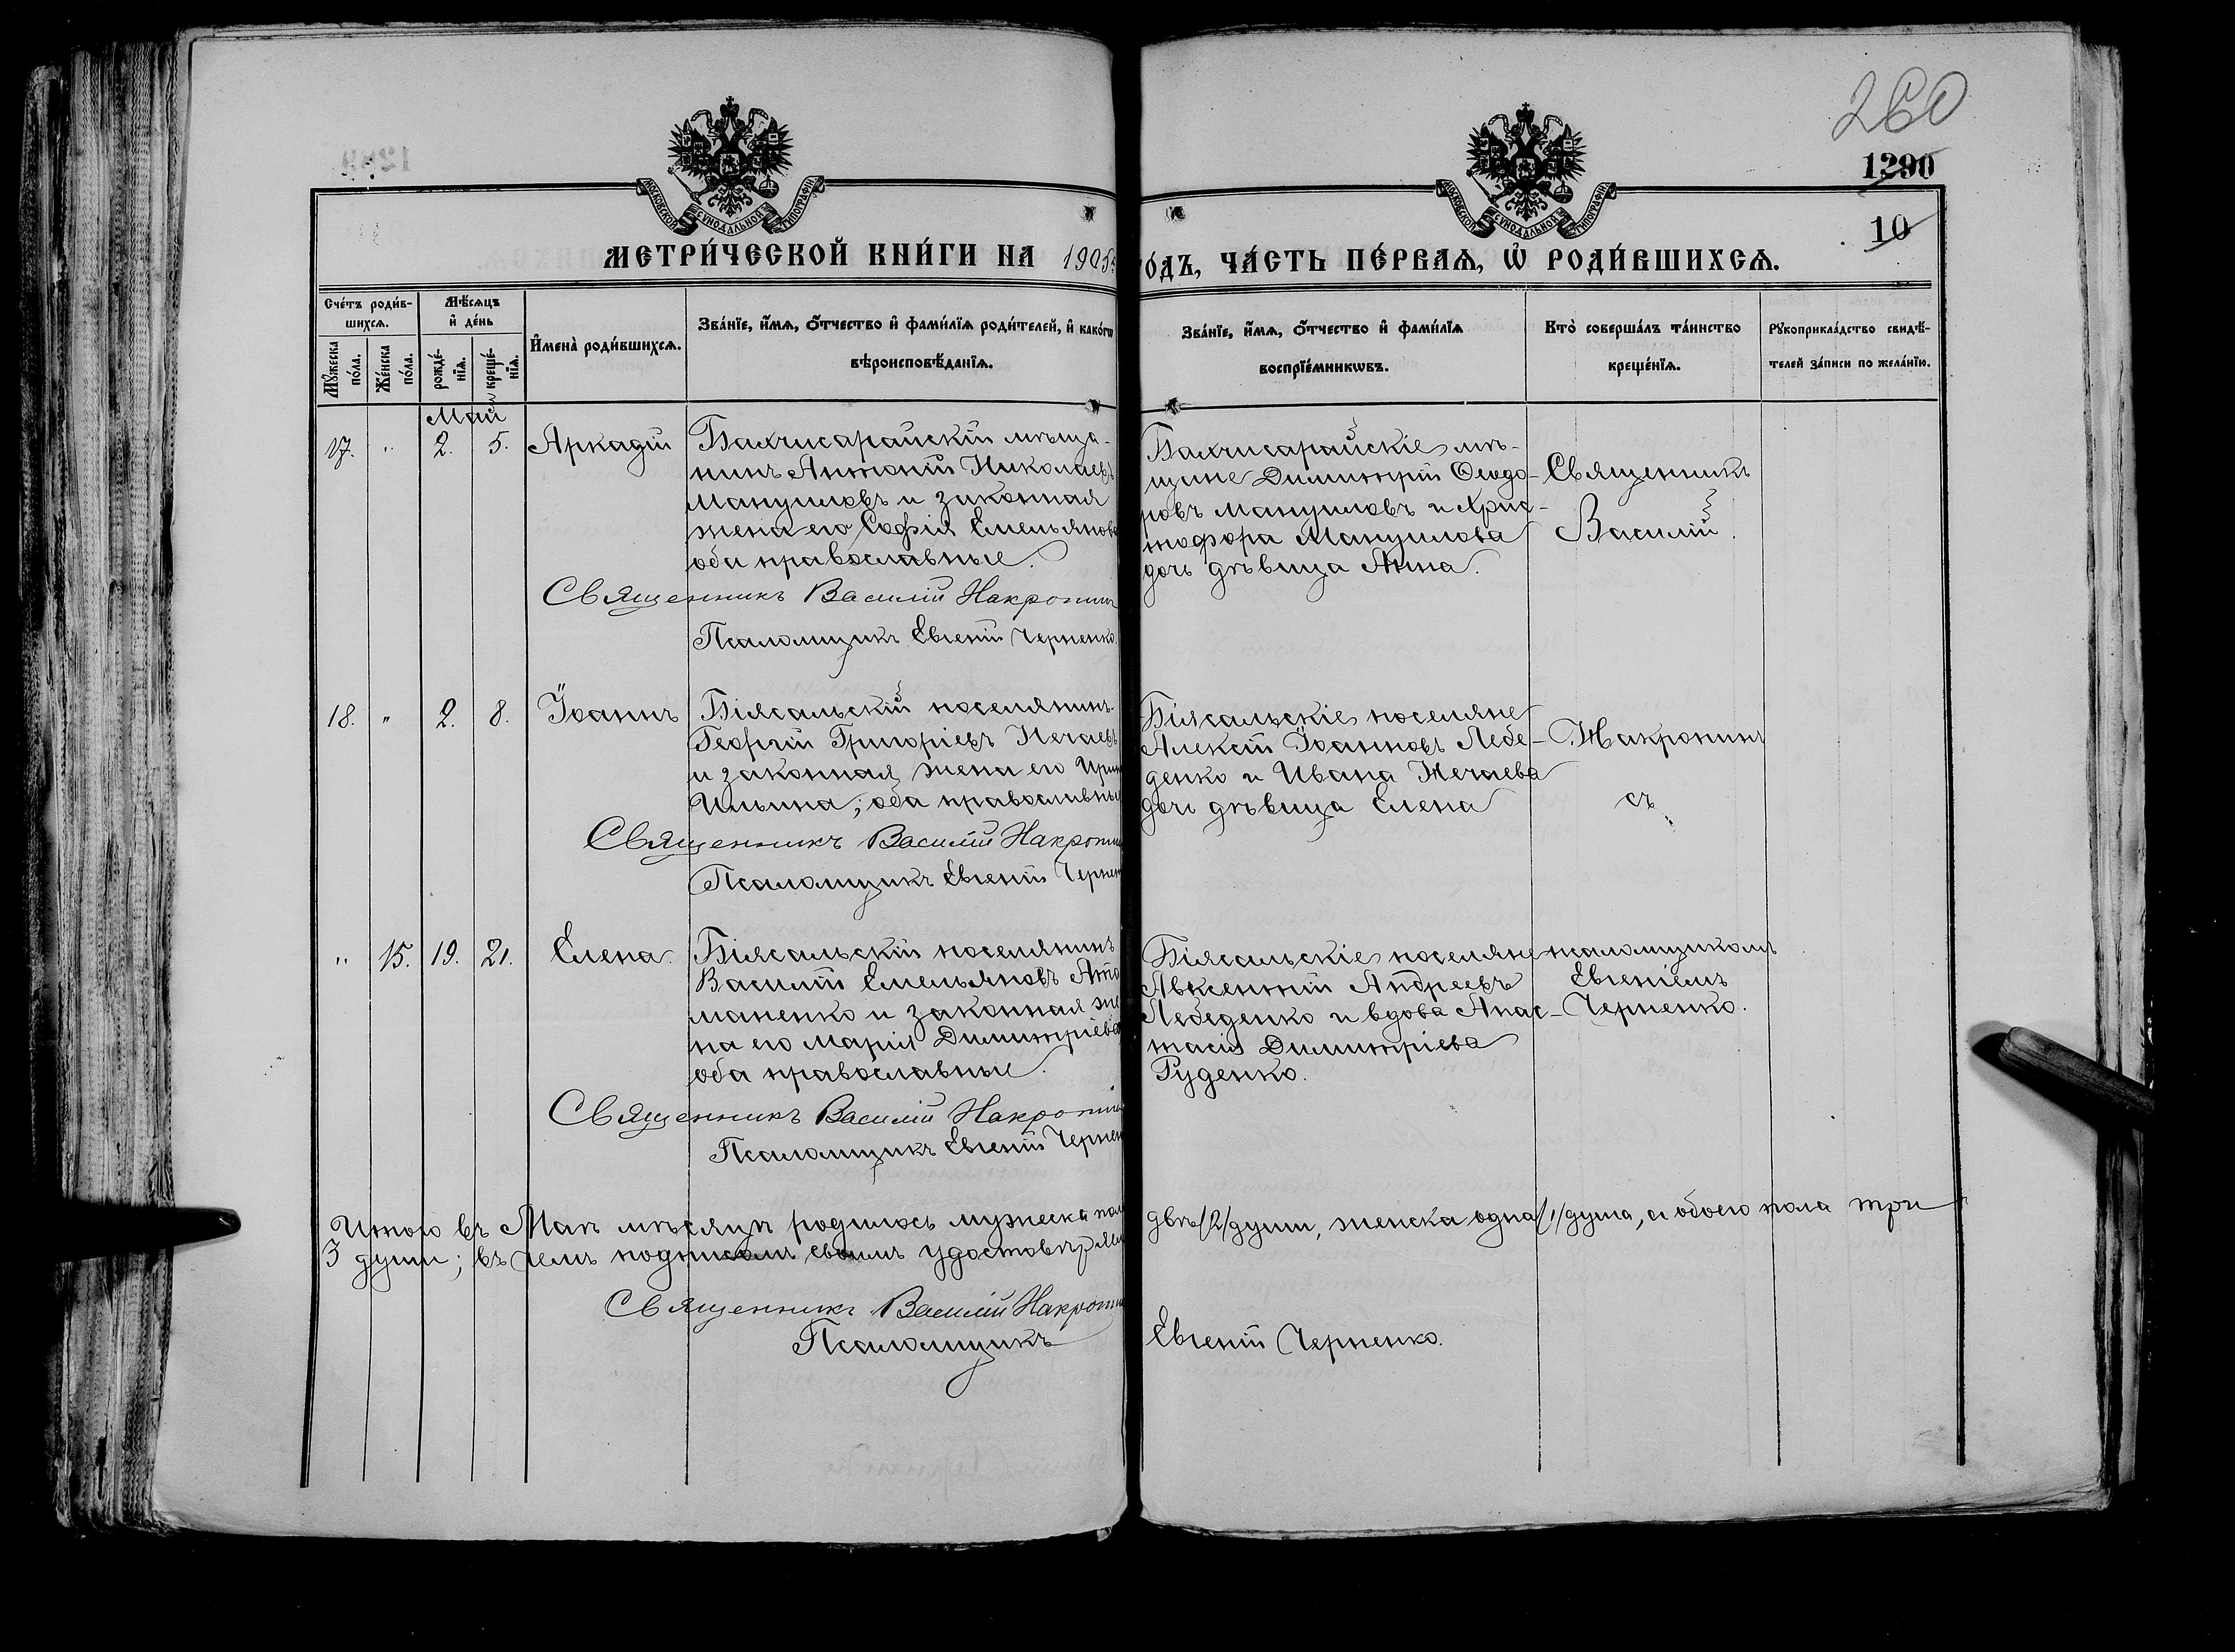 260
1290
10
МОСКОВСКОЙ СѴНОДАЛЬНОЙ ТИПОГРАФІИ
МОСКОВСКОЙ СѴНОДАЛЬНОЙ ТИПОГРАФІИ
МЕТРИ́ЧЕСКОЙ КНИ́ГИ НА 1905
ГО́ДЪ, ЧА́СТЬ ПЕ́РВАѦ, Ѡ҆ РОДИ́ВШИХСѦ.
Сче́тъ роди́в-
шихсѧ.
Мꙋ́жеска по́ла.
Же́нска по́ла.
Мѣ́сѧцъ
и҆ де́нь
рожде́-
нїѧ.
креще́-
нїѧ.
И҆мена̀ роди́вшихсѧ.
Зва́нїе, и҆́мѧ, ѻ҆́тчество и҆ фами́лїѧ роди́телей, и҆ како́гѡ
вѣроисповѣ́данїѧ.
Зва́нїе, и҆́мѧ, ѻ҆́тчество и҆ фами́лїѧ
воспрїе́мникѡвъ.
Кто̀ соверша́лъ та́инство
креще́нїѧ.
Рꙋкоприкла́дство свидѣ́-
телей за́писи по жела́нїю.
Май
17. " 2. 5. Аркадій
Бахчисарайскій мѣща-
нинъ Антоній Николаевъ
Мануиловъ и законная
жена его Софія Емельянова
оба православные.
Священникъ Василій Накропин
Псаломщикъ Евгеній Черненко.
Бахчисарайскіе мѣ-
щане Димитрій Ѳеодо-
ровъ Мануиловъ и Хрис-
тофора Мануилова
дочь дѣвица Анна.
Священникъ
Василій
18. " 2. 8. Іоаннъ
Біясальскій поселянинъ
Георгій Григоріевъ Нечаевъ
и законная жена его Ирин
Ильина; оба православные
Священникъ Василій Накропин
Псаломщикъ Евгеній Чернен
Біясальскіе поселяне
Алексій Іоанновъ Лебе-
денко и Ивана Нечаева
дочь дѣвица Елена
Накропинъ
съ
" 15. 19. 21. Елена
Біясальскій поселянинъ
Василій Емельяновъ Ата
маненко и законная же
на его Марія Димитріева
оба православные.
Священникъ Василій Накропин
Псаломщикъ Евгеній Чернен
Біясальскіе поселяне
Авксентій Андреевъ
Лебеденко и вдова Анас-
тасія Димитріева
Руденко.
псаломщикомъ
Евгеніемъ
Черненко.
Итого въ Маѣ мѣсяцѣ родилось мужеска пол двѣ /2/ души, женска одна /1/ душа, а обоего пола три
3 души; въ чемъ подписомъ своимъ удостовѣряем
Священникъ Василій Накропин
Псаломщикъ Евгеній Черненко.